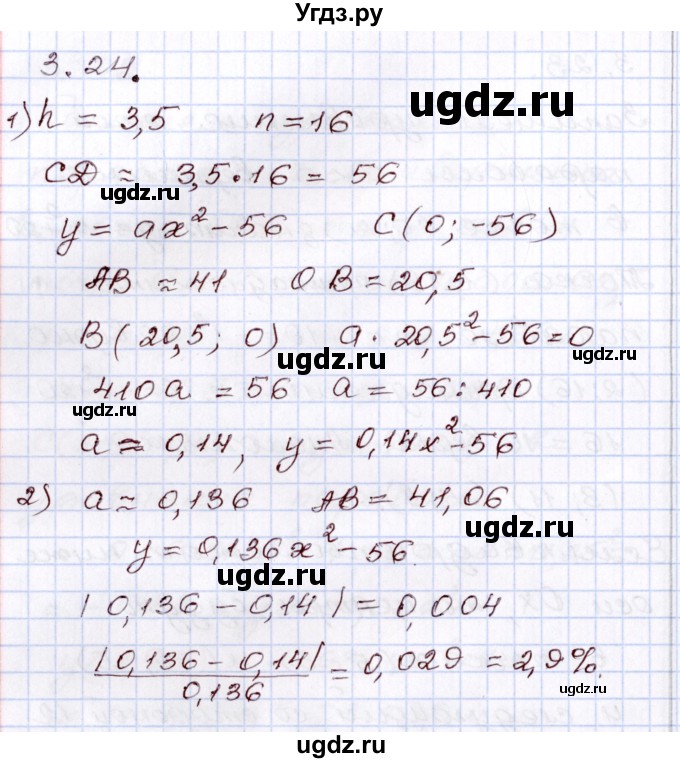 Угдз.ру
3.24.
1) h = 3,5 n = 16
угдз.ру
CD ≈ 3,5 · 16 = 56
ugdz.ru
y = ax² - 56 C(0; -56)
AB ≈ 41 OB = 20,5
ugdz.ru
B(20,5; 0) a · 20,5² - 56 = 0
ugdz.ru
ugdz.ru
410a = 56 a = 56 : 410
ugdz.ru
a ≈ 0,14, y = 0,14x² - 56
2) a ≈ 0,136 AB = 41,06
ugdz.ru
y = 0,136x² - 56
ugdz.ru
|0,136 - 0,14| = 0,004
ugdz.ru
|0,136 - 0,14| / 0,136 = 0,029 = 2,9%.
ugdz.ru
ugdz.ru
ugdz.ru